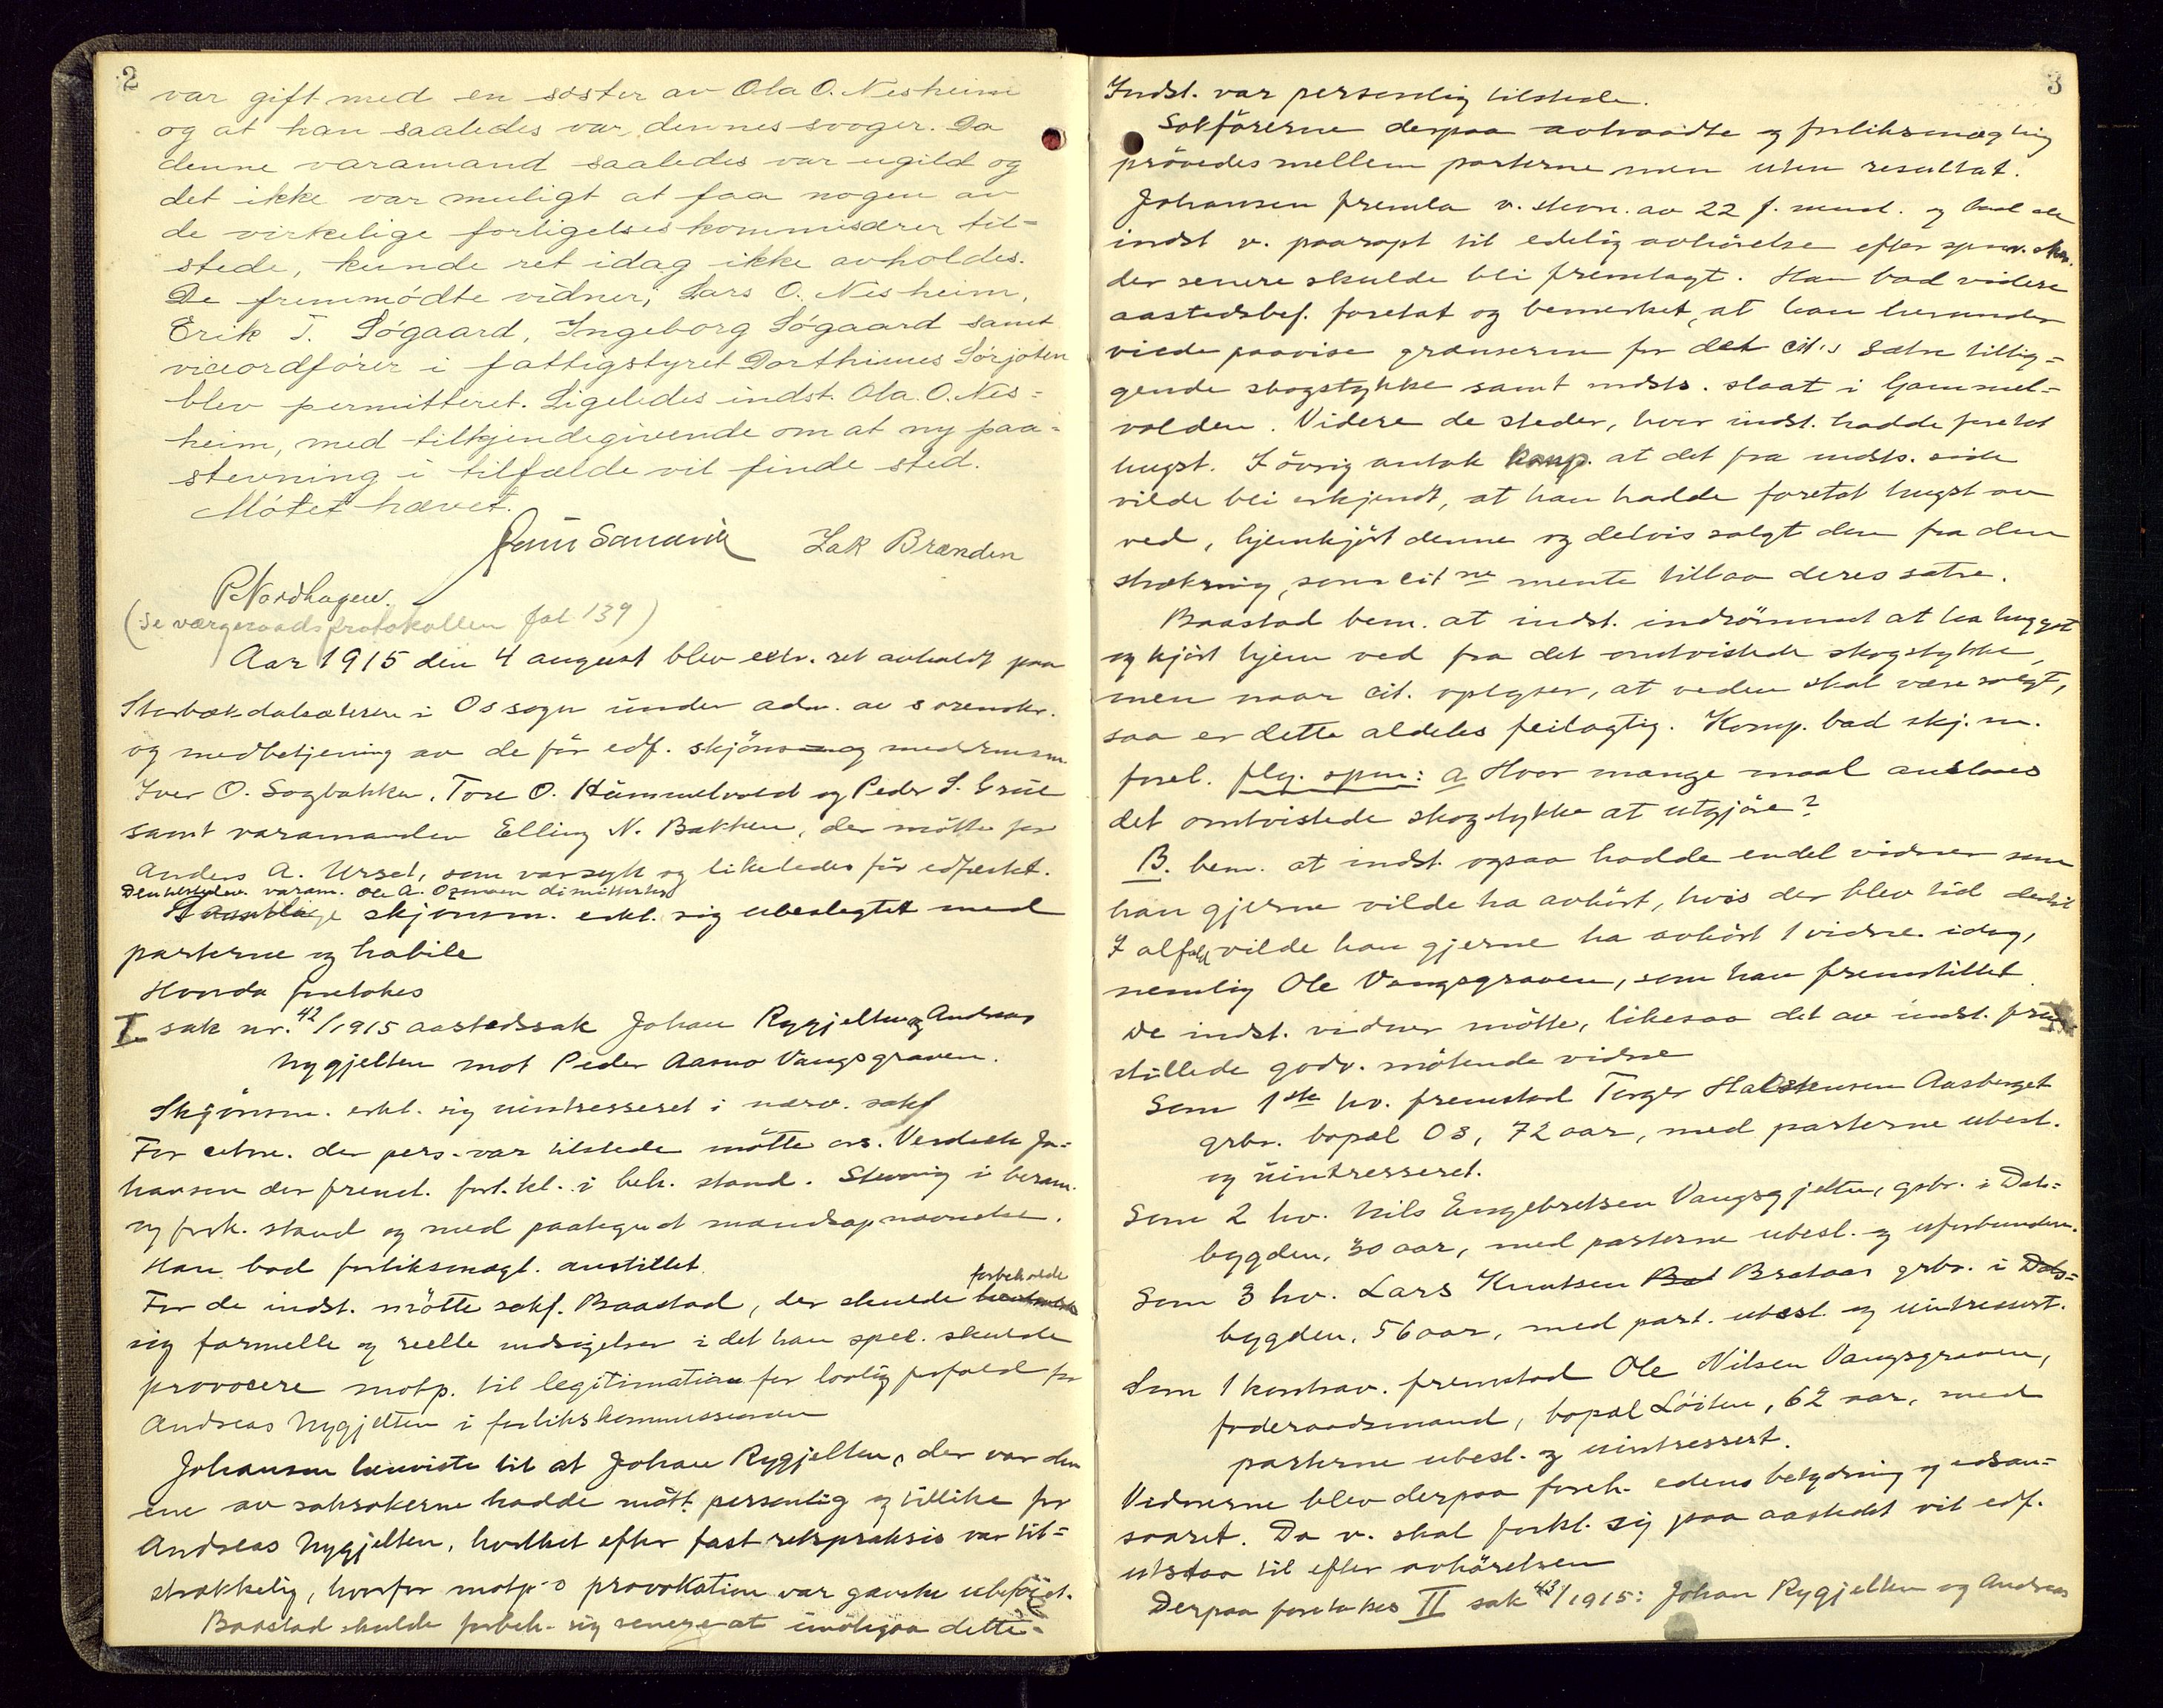 2
var gift med en søster av Ola O. Nesheim
og at han saaledes var dennes svoger. Da
denne varamand saaledes var ugild og
det ikke var muligt at faa nogen av
de virkelige forligelseskommisærer til-
stede, kunde ret idag ikke avholdes.
De fremmødte vidner, Lars O. Nesheim,
Erik T. Søgaard, Ingeborg Søgaard samt
viceordfører i fattigstyret Dorthinus Sörjoten
blev permitteret. Ligeledes indst. Ola O. Nes=
heim, med tilkjendegivende om at ny paa-
stevning i tilfælde vil finde sted.
Møtet hævet.
Sanavik Isak Brænden
P Nordhagen.
(Se værgeraadsprotokollen fol 139)
Aar 1915 den 4 august blev extr. ret avholdt paa
i Os sogn under adm. av sorenskr.
og medbetjening av de før edf. skjøns og meddmsm
Iver O. Sogbakke, Tore O. Hummelvold og Peder S. Grue
samt varamanden Elling N. Bakken, der møtte for
Anders A. Urset, som var syk og likeledes før edfæstet.
Den varam. Ole A. dimitteres
skjønsm. erkl. sig ubeslegtet med
parterne og habile
Hvorda foretokes
I sak nr. 42/1915 aastedssak Johan Rygjelten og Andreas
Nygjelten mot Peder Aasmo Vangsgraven.
Skjønsm. erkl. sig uintresseret i nærv. sak
For citne. der pers. var tilstede møtte ors. Jo=
hansen der freml. forl.kl. i beh. stand. Stevning i beram.
og fork. stand og med paategnet mandsopnævnelse.
Han bad forliksmægl. anstillet.
For de indst. møtte sakf. Baastad, der skulde forbeholde
sig formelle og reelle indsigelser i det han spec. skulde
provocere motp. til legitimation for lovlig forfald for
Andreas Nygjelten i forlikskommissionen
Johansen henviste til at Johan Rygjelten, der var den
ene av saksøkerne hadde møtt personlig og tillike for
Andreas Nygjelten, hvilket efter fast retspraksis var til=
strækkelig, hvorfor motp's provokation var ganske ubeføiet.
Baastad skulde forbeh. sig senere at imøtegaa dette.
3
Indst. var personlig tilstede.
Sakførerne derpaa avtraadte og forliksmægling
prøvedes mellem parterne men uten resultat.
Johansen fremla v. stevn. av 22 f. mnd. og bad de
indst v. paaropt til edelig avhørelse efter spm. skr.
der senere skulde bli fremlagt. Han bad videre
aastedsbef. foretat og bemerket, at han herunder
vilde paavise grænserne for det cit.s sætre tillig=
gende skogstykke samt indsts. slaat i Gammel=
volden. Videre de steder, hvor indst. hadde foretat
hugst. I øvrig antok komp. at det fra indsts. side
vilde bli erkjendt, at han hadde foretat hugst av
ved, hjemkjørt denne og delvis solgt den fra den
strækning, som cit ne mente tillaa deres sætre.
Baastad bem. at indst. indrømmet at ha hugget
og kjørt hjem ved fra det omtvistede skogstykke,
men naar cit. oplyser, at veden skal være solgt,
saa er dette aldeles feilagtig. Komp. bad skj.m.
forel. flg. spm: a Hvor mange maal anslaaes
det omtvistede skogstykke at utgjøre?
B. bem. at indst. ogsaa hadde endel vidner som
han gjerne vilde ha avhørt, hvis der blev tid dertil
I alfald vilde han gjerne ha avhørt 1 vidne idag,
nemlig Ole Vangsgraven, som han fremstillet
De indst. vidner møtte, likesaa det av indst. frem
stillede godv. møtende vidne
Som 1ste hv. fremstod Torger Halstensen Aasberget
grbr. bopæl Os, 72 aar, med parterne ubesl.
og uintresseret.
Som 2 hv. Nils Engebretsen Vangsgjelten, gbr. i Dals=
bygden, 30 aar, med parterne ubesl. og uforbunden.
Som 3 hv. Lars Knutsen Brataas grbr. i Dals=
bygden, 56 aar, med part. ubesl. og uintressert.
Som 1 kontrav. fremstod Ole Nilsen Vangsgraven,
føderaadsmand, bopæl Løiten, 62 aar, med
parterne ubesl. og uintressert.
Vidnerne blev derpaa foreh. edens betydning og edsan=
svaret. Da v. skal forkl. sig paa aastedet vil edf.
utstaa til efter avhørelsen
Derpaa foretokes II sak 43/1915: Johan Rygjelten og Andreas